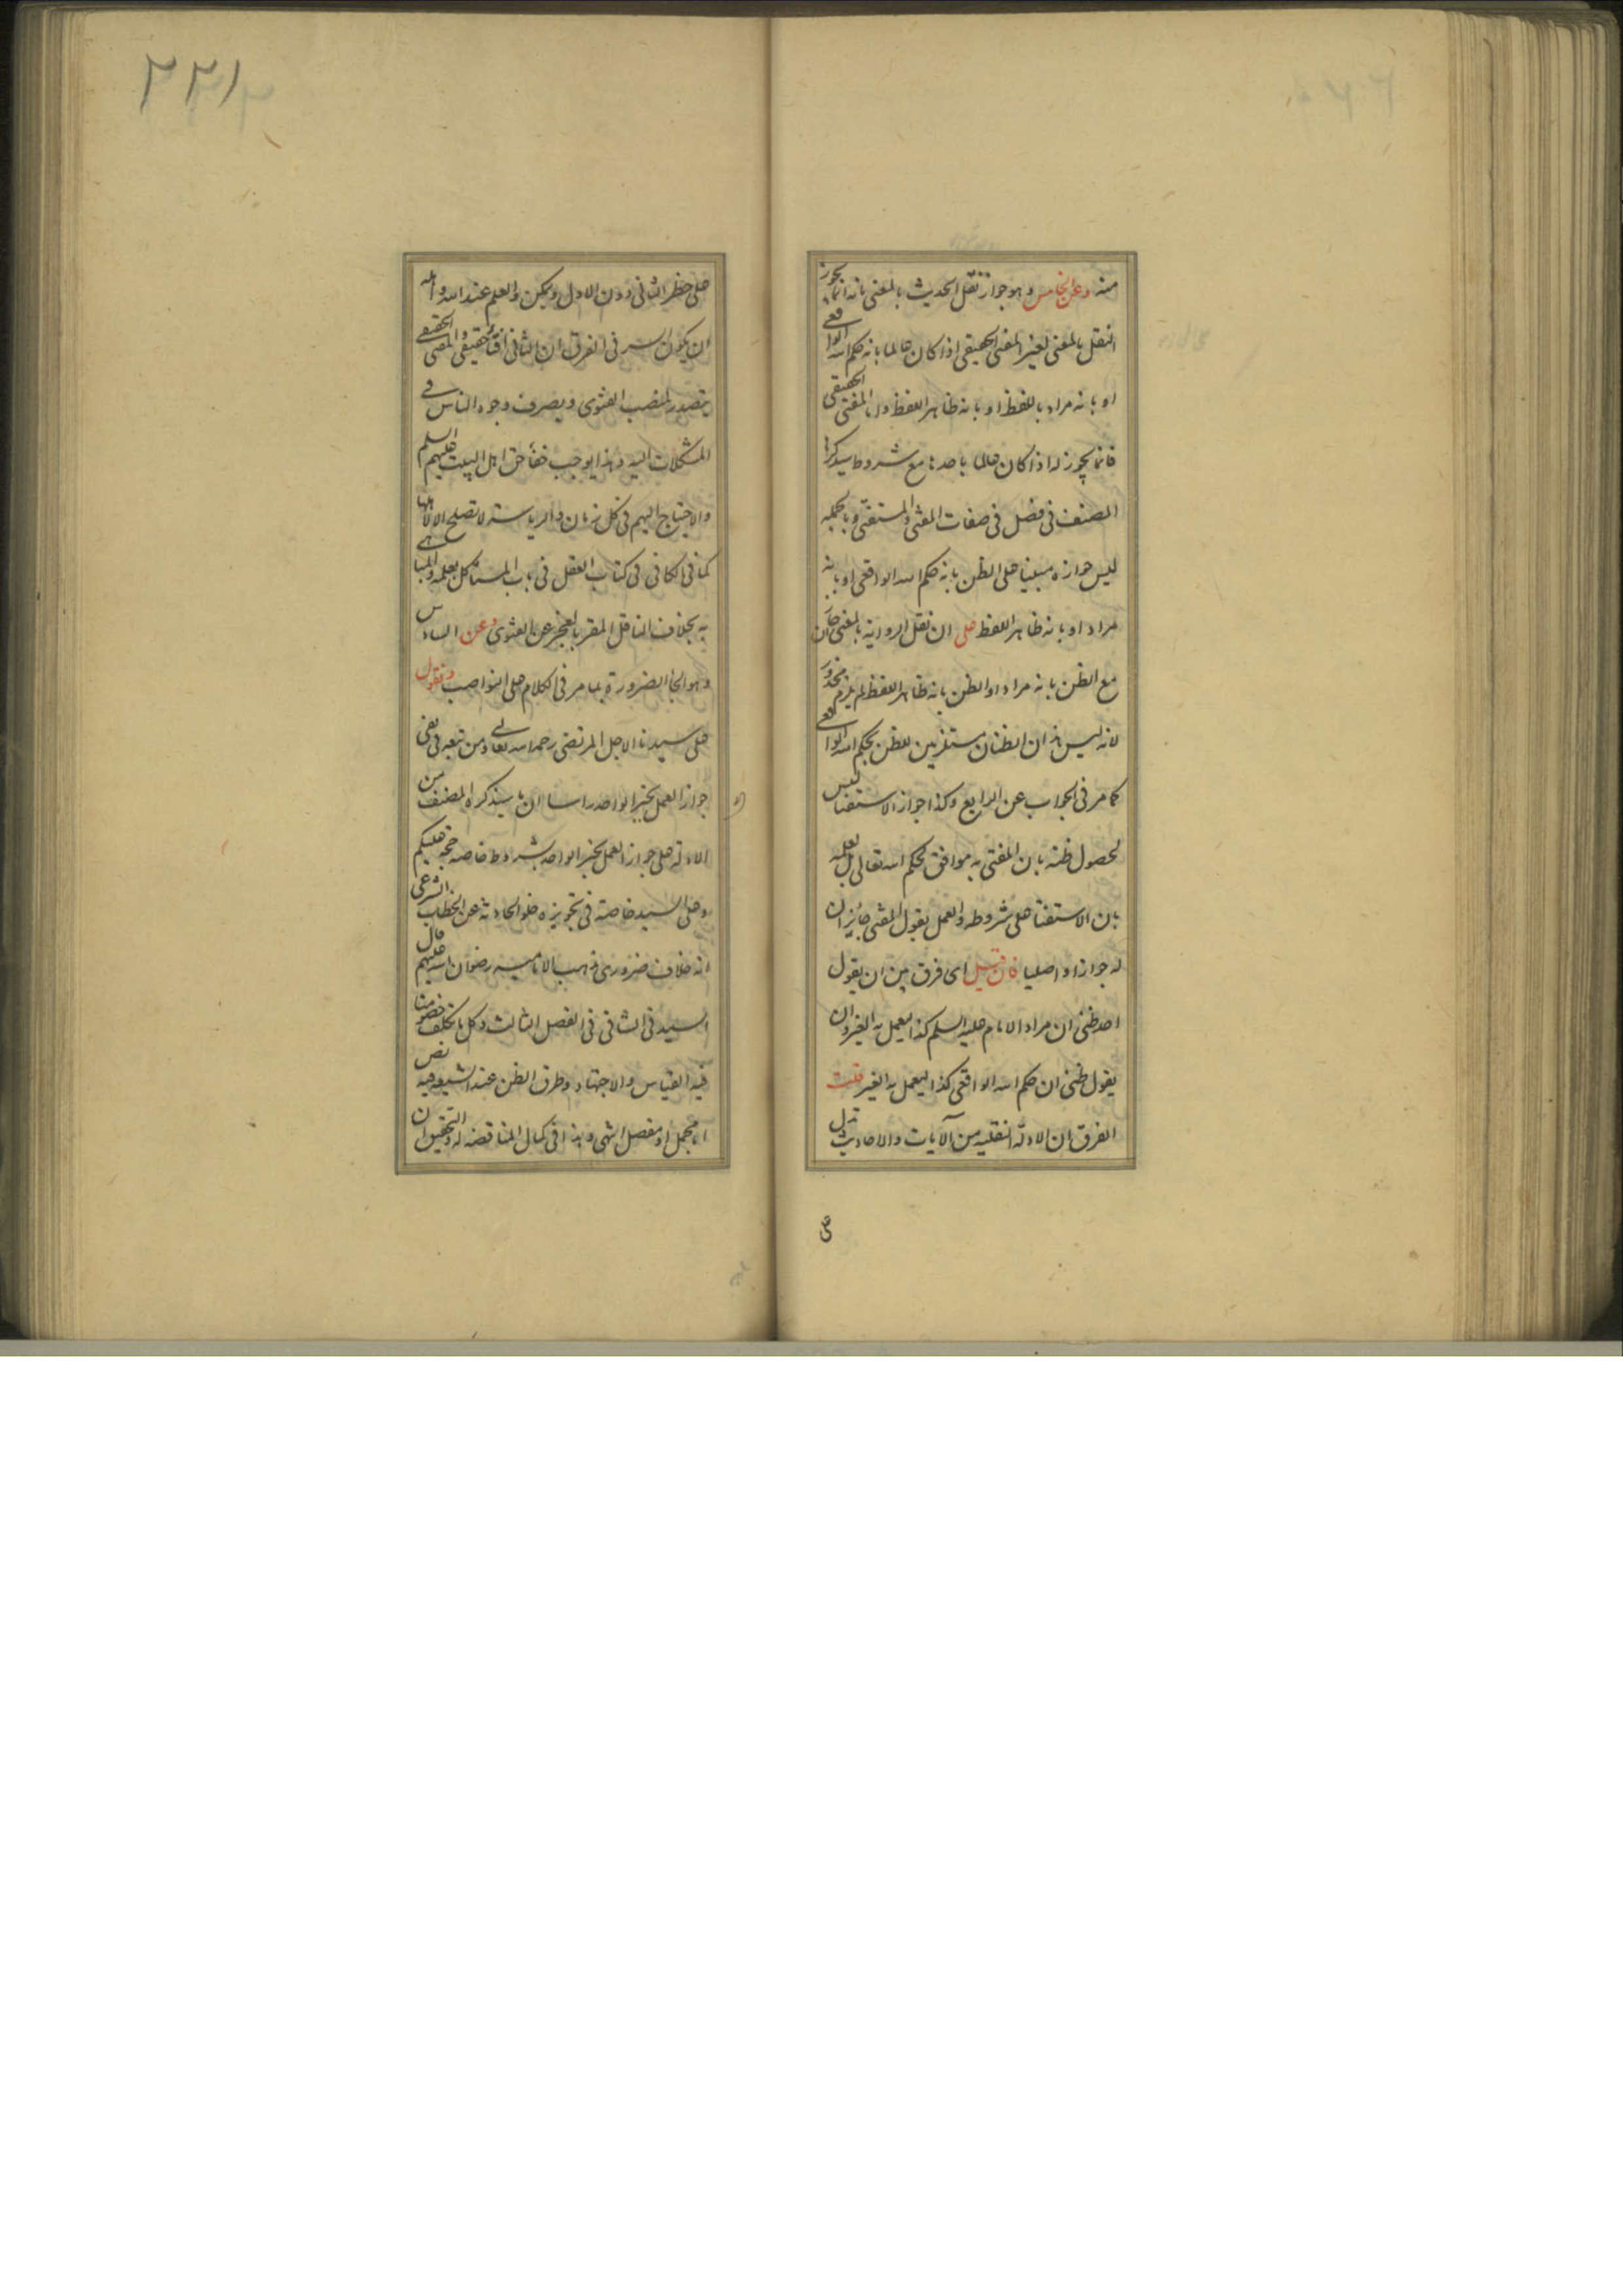 منه وعن الخامس وهو جواز نقل الحديث بالمعنى بانه انما يجوز
النقل بالمعنى لغير المفتى الحقيقى اذا كان عالما بانه حكم الله الواقعى
او بانه مراد باللفظ او بانه ظاهر اللفظ واما المفتى الحقيقى
فانما يجوز له اذا كان عالما باحدها مع شروط سيذكرها
المصنف فى فصل فى صفات المفتى والمستفتى وبالجملة
ليس جوازه مبنيا على الظن بانه حكم الله الواقعى او بانه
مراد او بانه ظاهر اللفظ على ان نقل الرواية بالمعنى جاز ان
مع الظن بانه مراد او الظن بانه ظاهر اللفظ لم يلزم محذور
لانه ليس هذان الظنان مستلزمين للظن بحكم الله الواقعى
كما مر فى الجواب عن الرابع وكذا جواز الاستفتا ليس
لحصول ظنه بان المفتى به موافق لحكم الله تعالى بل لعلمه
بان الاستفتا على شروطه والعمل بقول المفتى جائز ان
له جوازا واصليا فان قيل اى فرق بين ان يقول
احد ظنى ان مراد الامام عليه السلم كذا ليعمل به الغير وان
يقول ظنى ان حكم الله الواقعى كذا ليعمل به الغير قلت
الفرق ان الادلة النقلية من الآيات والاحاديث تدل
ى
٢٢١
على حظر الثانى دون الاول ويمكن والعلم عند الله واهله
ان يكون السر فى الفرق ان الثانى افتاء حقيقى والمفتى الحقيقى
يتصدر لمنصب الفتوى ويصرف وجوه الناس فى
المشكلات اليه وهذا يوجب خفاء حق اهل البيت عليهم السلم
والاحتياج اليهم فى كل زمان والرياسة لا تصلح الا لاهلها
كما فى الكافى فى كتاب العقل فى باب المستاكل بعلمه والمباهى
به بخلاف الناقل المقر بالعجز عن الفتوى وعن السادس
وهو الجأ الضرورة بما مر فى الكلام على النواصب ونقول
على سيدنا الاجل المرتضى رحمه الله تعالى ومن تبعه فى نفى
جواز العمل بخبر الواحد راسا ان ما سيذكره المصنف من
الادلة على جواز العمل بخبر الواحد بشروط خاصه حجة عليكم
وعلى السيد خاصة فى تجويزه خلو الحادثة عن الخطاب الشرعى
انه خلاف ضرورى مذهب الامامية رضوان الله عليهم قال
السيد فى الشافى فى الفصل الثالث وكل ما تكلف خصومنا
فيه القياس والاجتهاد وطرق الظن عند الشيعة فيه نص
اما مجمل او مفصل انتهى وهذا فى كمال المناقضه له والتحقيق ان